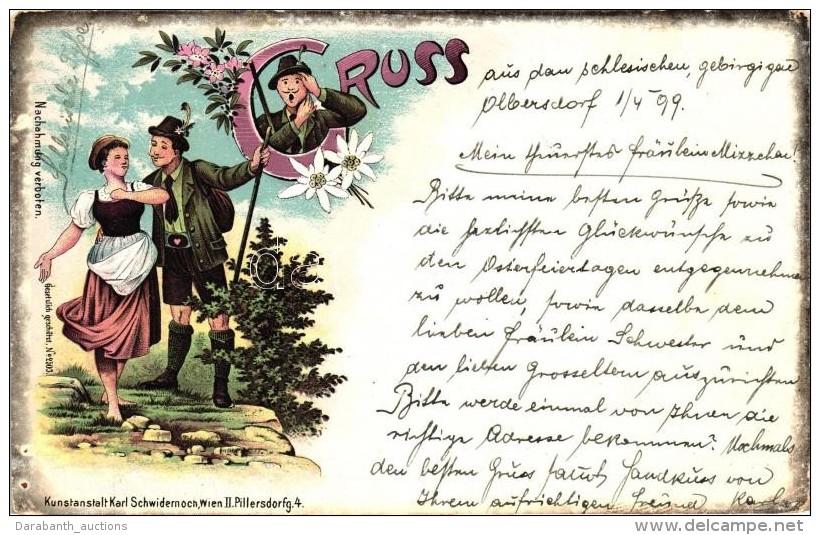 GRUSS
aus dem schlesischen, gebirgigen
Olbersdorf 1/4 99.
Mein theuerstes Fräulein Mizzchen!
Bitte meine besten Grüße sowie
die herzlichsten Glückwünsche zu
den Osterfeiertagen entgegennehmen
zu wollen, sowie dasselbe dem
lieben Fräulein Schwester und
den lieben Grosseltern auszurichten
Bitte werde einmal von Ihnen die
richtige Adresse bekommen? Nochmals
den besten Gruss samt Handkuss von
Ihrem aufrichtigen Freund Karl
Nachahmung verboten.
Gesetzlich geschützt. No 2303.
Kunstanstalt Karl Schwidernoch, Wien II. Pillersdorfg. 4.
dc
Darabanth_auctions
delcampe.net